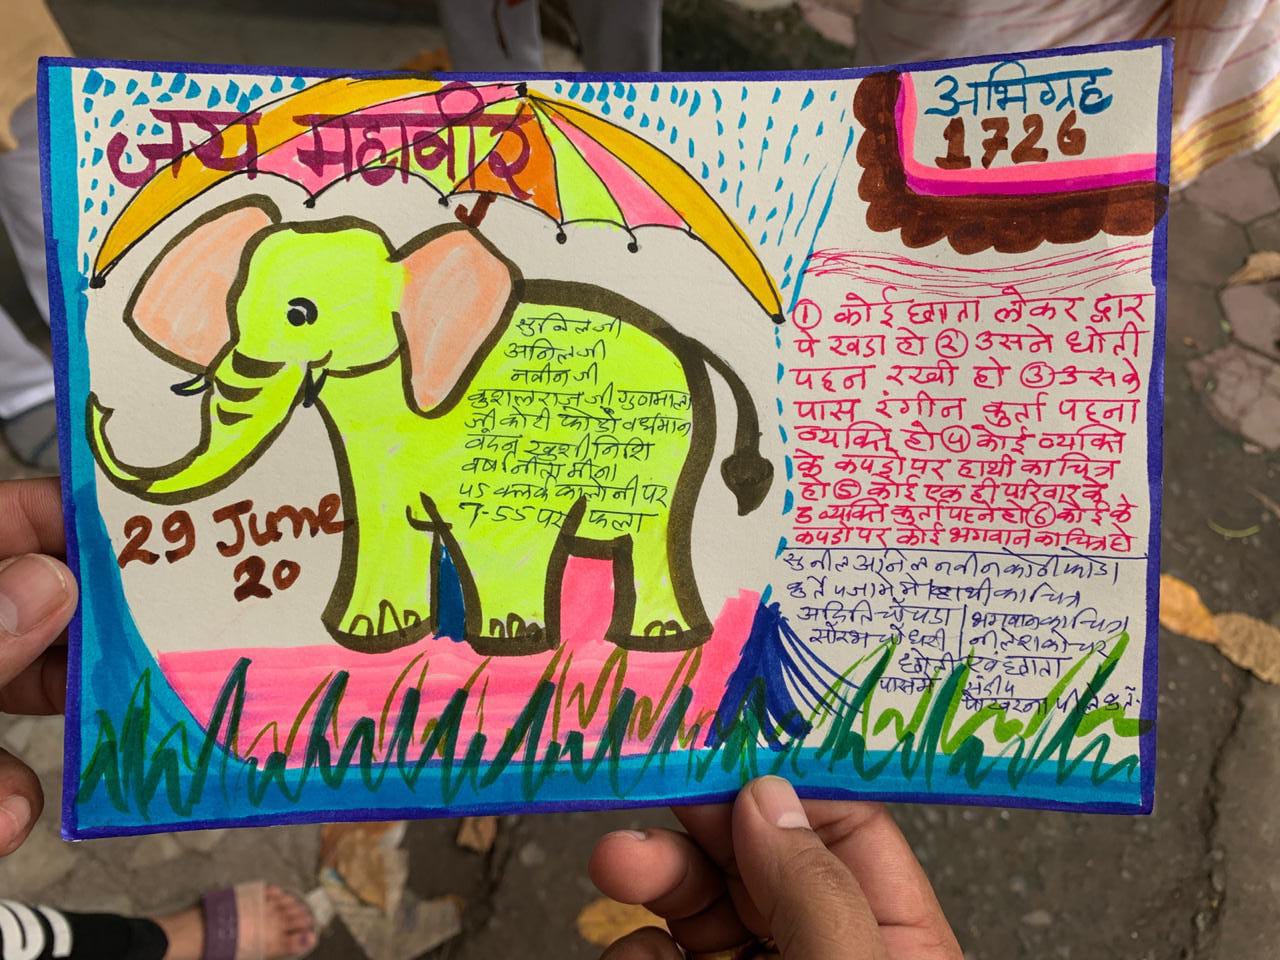 जय महावीर
अभिग्रह
1726
सुनिलजी
अनिलजी
नवीनजी
कुशलराज जी गुणमाला
जी कोटी फोडा वर्धमान
वंदना खुशी निशि
वर्षा नीता मीना
45 क्लर्क कालोनी पर
7-55 पर फला
29 June
20
① कोई छाता लेकर द्वार
पे खडा हो ② उसने धोती
पहन रखी हो ③ उसके
पास रंगीन कुर्ता पहना
व्यक्ति हो ④ कोई व्यक्ति
के कपडो पर हाथी का चित्र
हो ⑤ कोई एक ही परिवार के
3 व्यक्ति कुर्ता पहने हो ⑥ कोई के
कपडो पर कोई भगवान का चित्र हो
सुनील अनिल नवीन कोटी फोडा
कुर्ते पजामे मे हाथी का चित्र
अदिति चौपडा भगवान का चित्र
सौरभ चौधरी नीलेश कोचर
धोती एवं छाता
पास मे संदीप
पोखरना पीले कुर्ते